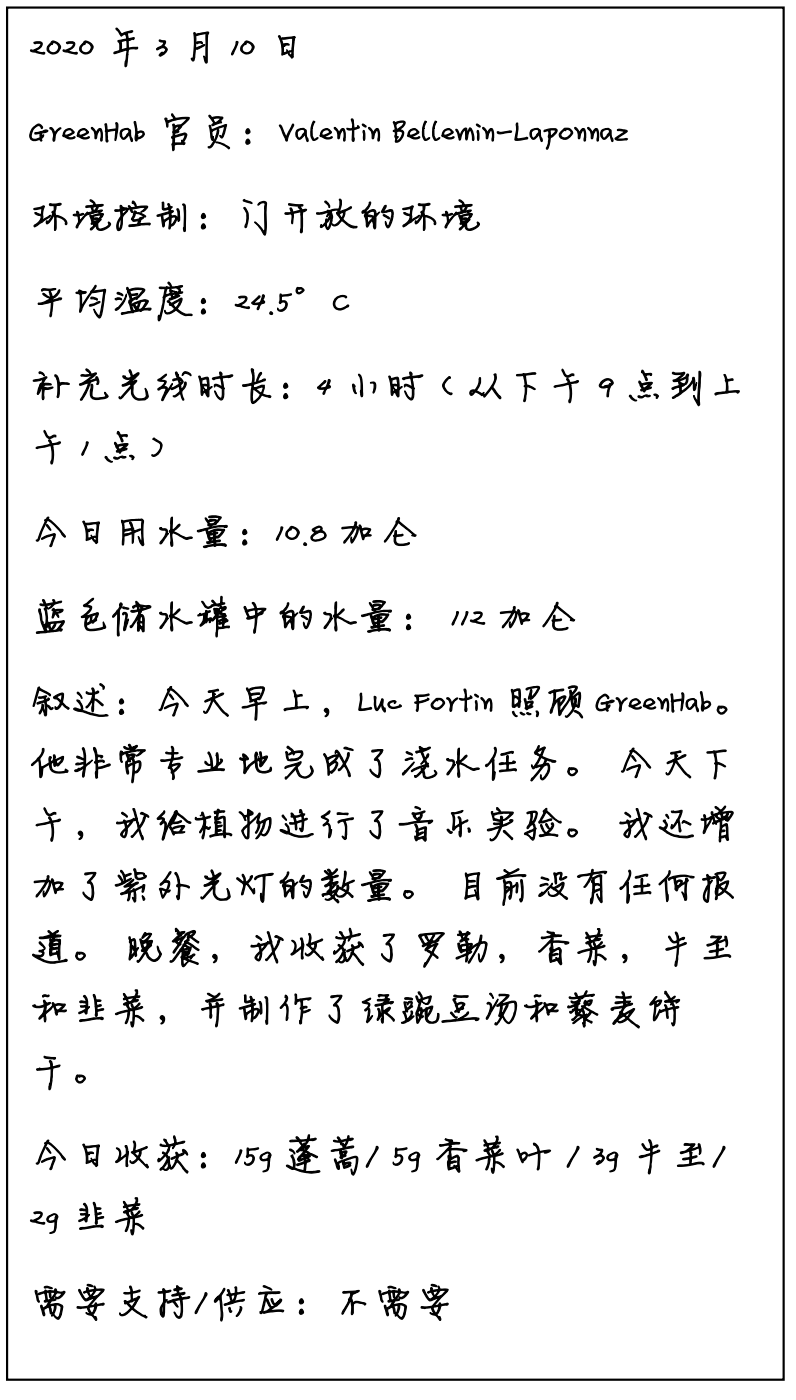 2020 年 3 月 10 日
GreenHab 官员: Valentin Bellemin-Laponnaz
环境控制: 门开放的环境
平均温度: 24.5° C
补充光线时长: 4 小时 (从下午 9 点到上
午 1 点)
今日用水量: 10.8 加仑
蓝色储水罐中的水量: 112 加仑
叙述: 今天早上, Luc Fortin 照顾 GreenHab。
他非常专业地完成了浇水任务。 今天下
午, 我给植物进行了音乐实验。 我还增
加了紫外光灯的数量。 目前没有任何报
道。 晚餐, 我收获了罗勒, 香菜, 牛至
和韭菜, 并制作了绿豌豆汤和藜麦饼
干。
今日收获: 15g 蓬蒿/ 5g 香菜叶 / 3g 牛至/
2g 韭菜
需要支持/供应: 不需要